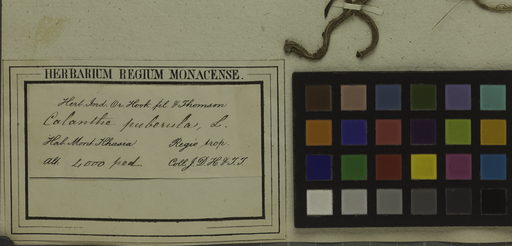 HERBARIUM REGIUM MONACENSE.
Herb. Ind. Or. Hook fil & Thomson
Calanthe puberula, L.
Hab. Mont. Khasia Regio trop.
Alt. 4000 ped. Coll. J. D. H. & T. T.